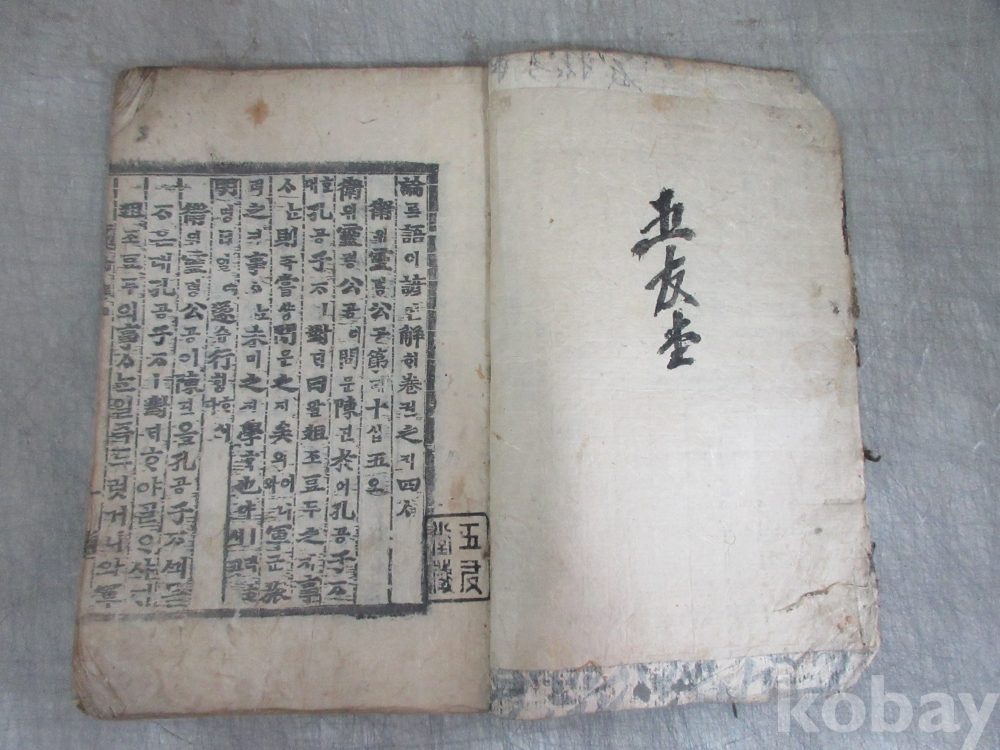 五友堂
論론語어諺언解해卷권之지四ᄉᆞ
衛위靈령公공第뎨十십五오
衛위靈령公공이問문陳딘於어孔공子ᄌᆞ
孔공子ᄌᆞㅣ對ᄃᆡ曰왈俎조豆두之지事
ᄉᆞᄂᆞᆫ則즉嘗샹聞문之지矣의어니와軍군旅
려之지事ᄉᆞᄂᆞᆫ未미之지學ᄒᆞᆨ也야
明명日일에遂슈行ᄒᆡᆼᄒᆞ시다
衛위靈령公공이陳딘을孔공子ᄌᆞᄭᅴ묻
ᄌᆞ온대孔공子ᄌᆞㅣ對ᄃᆡᄒᆞ야ᄀᆞᆯᄋᆞ샤ᄃᆡ
俎조豆두의事ᄉᆞᄂᆞᆫ일즉드럿거니와軍
kobay